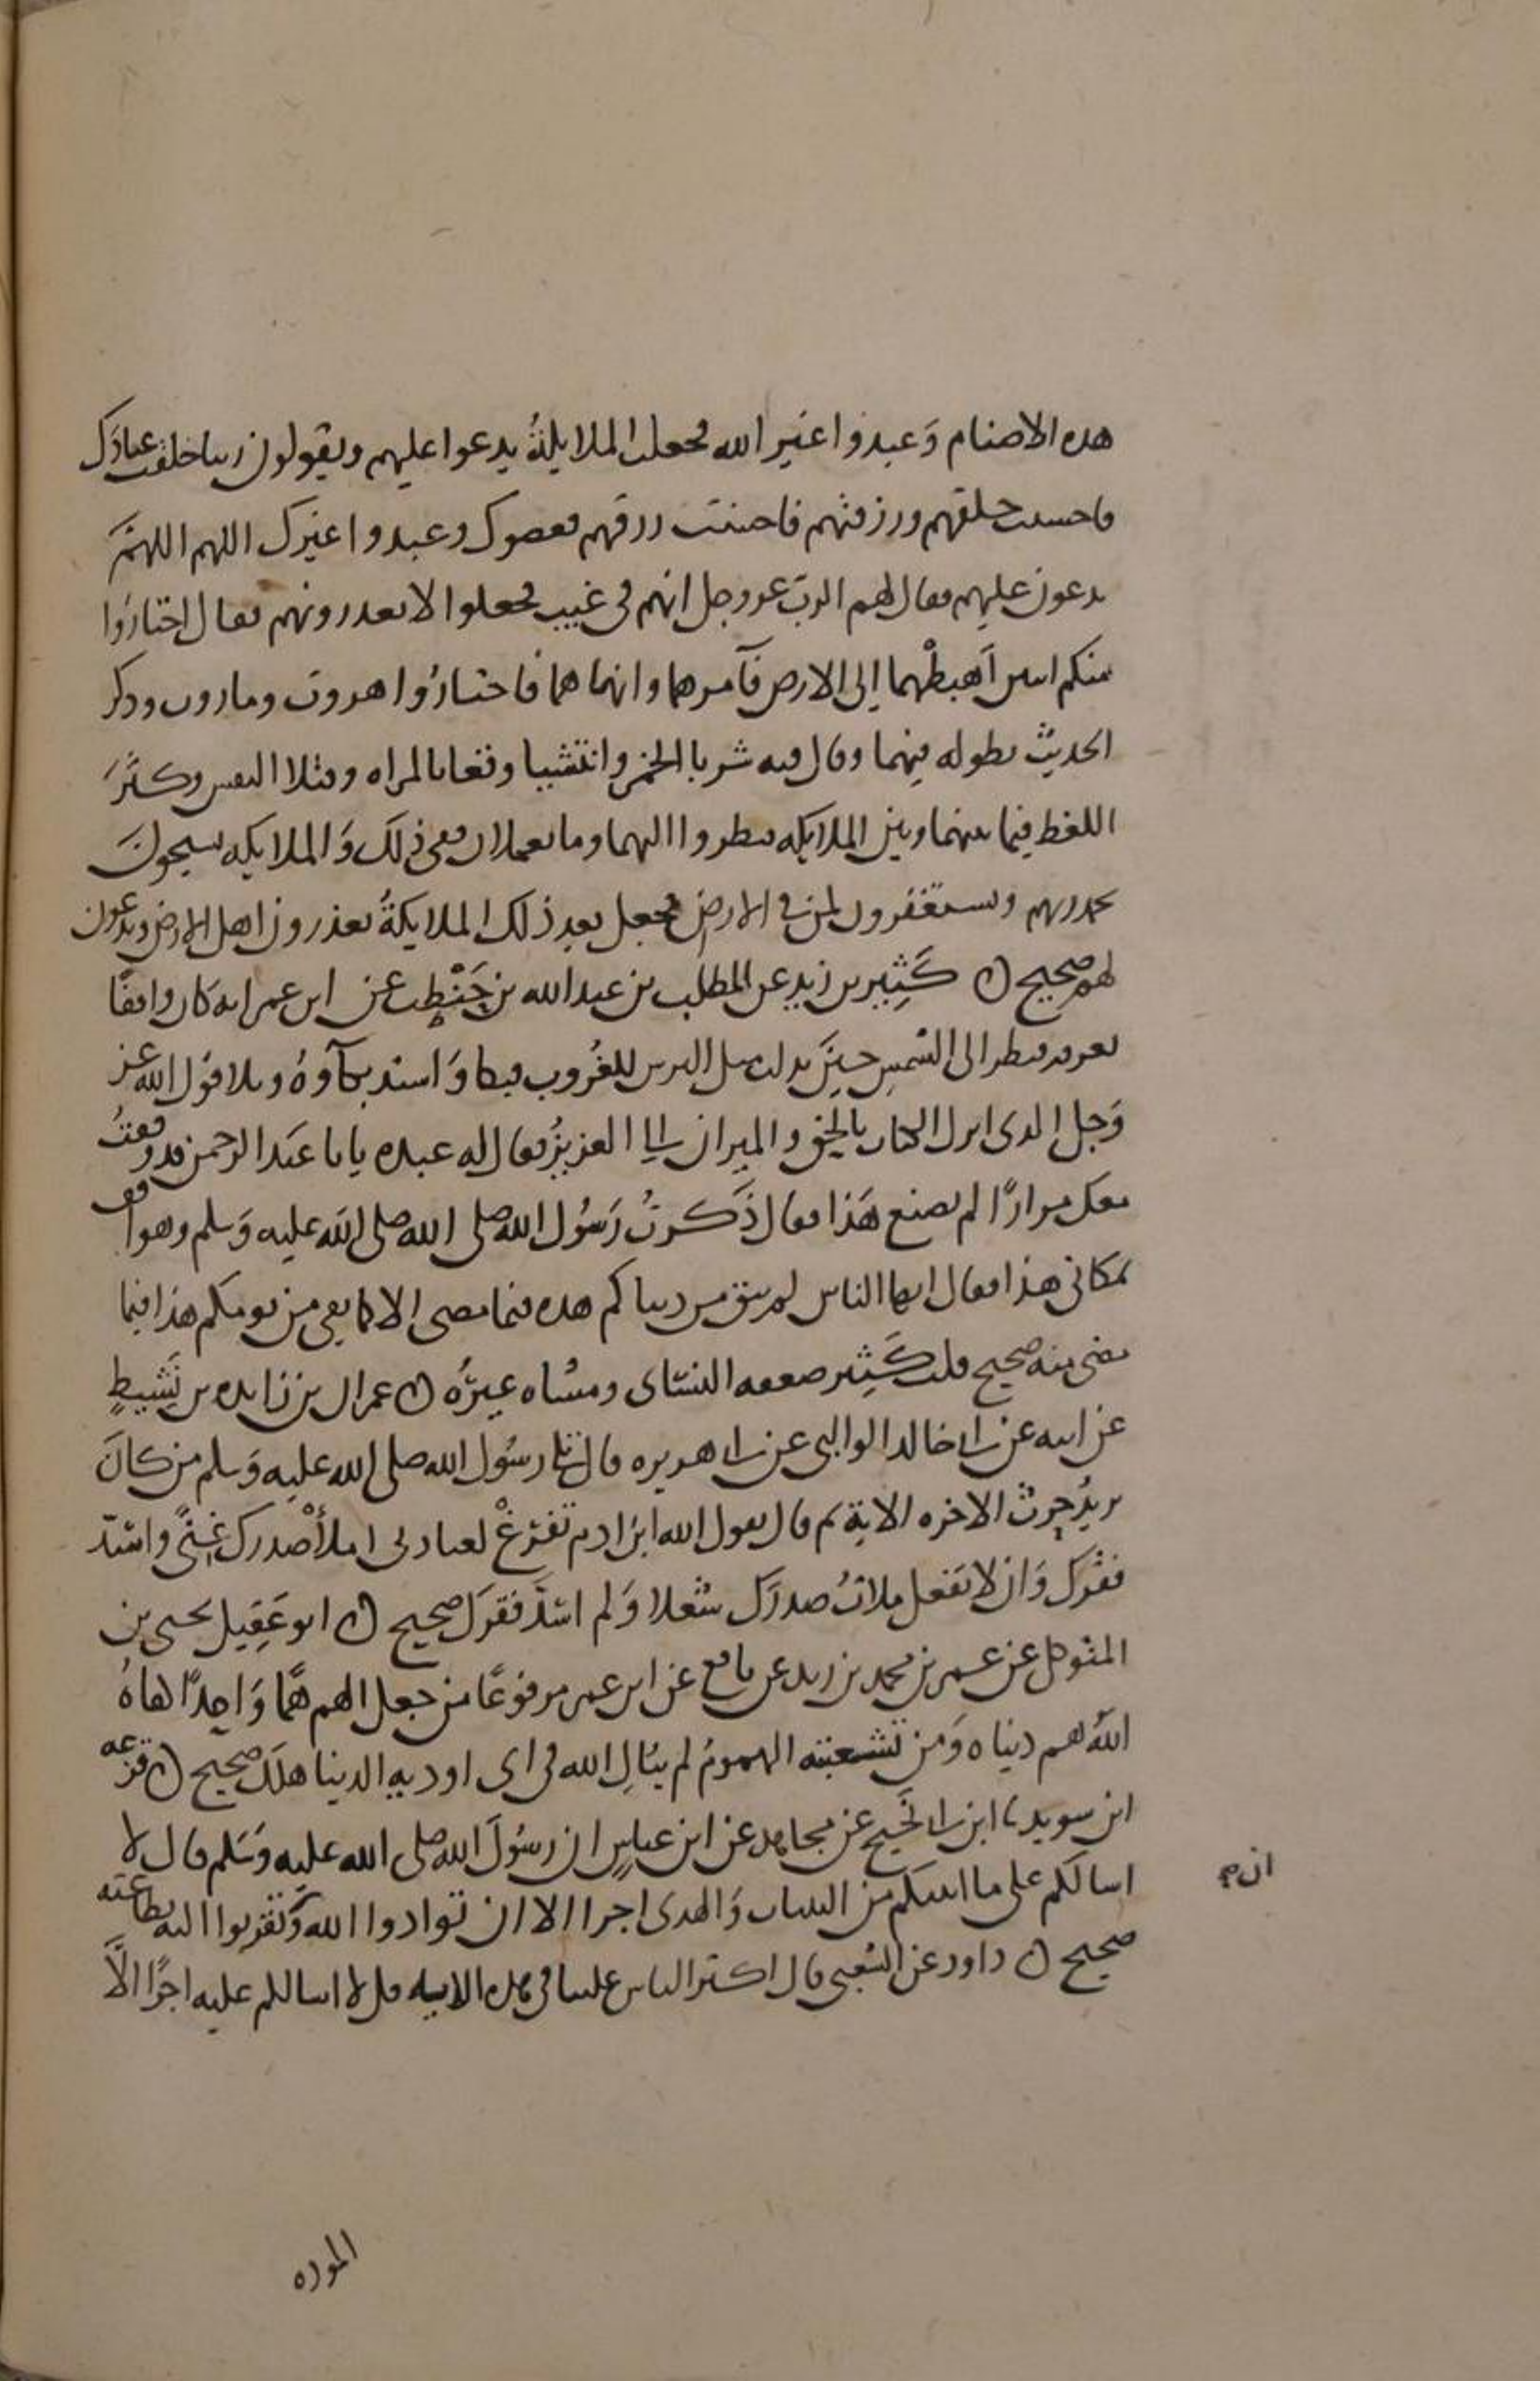 هذه الاصنام وَعبدوا غير الله فجعلت الملايكةُ يدعوا عليهم ويقولون ربنا خلقت عبادَك
فاحسنت خلقهم ورزقتهم فاحسنت رزقهم فعصوك وعبدوا غيرك اللهم اللهمَّ
يدعون عليهم فقال لهم الربّ عز وجل انهم في غيب فجعلوا لا يعذرونهم فقال اختارُوا
منكم اثنين اُهبطْهما إلى الارض فآمرهما وانهاهما فاختارُوا هروت وماروت وذكر
الحديث بطوله فيهما وقال فيه شربا الخمر وانتشيا وقعا بالمراه وقتلا النفس وكثُرَ
اللغط فيما بينهما وبين الملايكه فنظروا اليهما وما يعملان ففي ذلك وَالملايكه يسبحونَ
بحمد ربهم ويستغفرون لمن في الارض فجعل بعد ذلك الملايكةُ يعذرون اهل الارض ويدعون
لهم صحيح ⁧ن⁩ كَثِير بن زيد عن المطلب بن عبد الله بن حَنْطب عن ابن عمر انه كان واقفًا
بعرفه فنظر الى الشمس حينَ تدلت مثل الترس للغُروب فبكا وَاشتد بكآوهُ وتلا قول الله عز
وَجل الذي انزل الكتاب بالحق والميزان الى العزيزُ فقال له عبده يابا عَبد الرحمن قد وقفتُ
معك مرارًا لم تصنع هَذا فقال ذَكرتُ رَسُول الله صلى الله صلى الله عليه وَسلم وهو واقف
بمكاني هذا فقال ايها الناس لم يبق من دنياكم هذه فيما مضى الا كما بقي من يومكم هذا فيما
مضى منه صحيح قلت كَثِير ضعفه النسَائ ومشاه غيرُه ⁧ن⁩ عمران بن زايده بن نَشيطٍ
عن ابيه عن ابي خالد الوالبي عن ابي هريره قال تلا رسُول الله صلى الله عليه وَسلم من كانَ
يريدُ حرث الاخره الاية ثم قال يقول الله ابنَ ادم تَفرغْ لعبادتي املأْ صدرك غِنًى واسُدّ
فقرَك وَان لا تفعل ملاتُ صدرَك شُغلا وَلم اسُدَّ فقرَك صحيح ⁧ن⁩ ابو عَقِيل يحيى بن
المتوكل عن عمر بن محمد بن زيد عن نافع عن ابن عمر مرفوعًا من جعل الهم همًّا وَاحِدًا كفاهُ
اللهُ هم دنياه وَمن تشعبته الهمومُ لم يبَالِ الله في اى اوديه الدنيا هلَك صحيح ⁧ن⁩ قزعه
ابن سويد نا ابن ابي نَجيح عن مجاهد عن ابن عباسٍ ان رسُولَ الله صلى الله عليه وَسَلم قال لا
اسالكم على ما اتيتكم من البينات وَالهدى اجرا الا ان توادوا الله وَتقربوا اليه بطاعته
ان م
صحيح ⁧ن⁩ داود عن الشعبي قال اكثر الناس علينا في هذه الايه قل لا اسالكم عليه اجرًا الاَّ
الموده